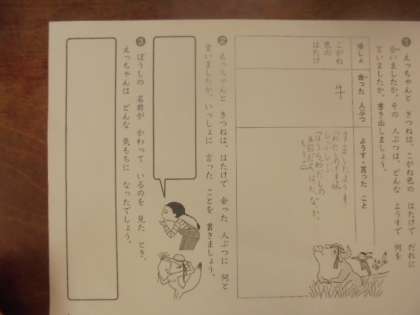 ① えっちゃんと きつねは、こがね色の はたけで だれに
会いましたか。その 人ぶつは、どんな ようすで 何を
言いましたか。書き出しましょう。
場しょ
会った 人ぶつ
ようす・言った こと
こがね
色の
はたけ
牛
② えっちゃんと きつねは、はたけで 会った 人ぶつに 何と
言いましたか。いっしょに 言った ことを 書きましょう。
③ ぼうしの 名前が かわって いるのを 見た とき、
えっちゃんは どんな 気もちに なったでしょう。